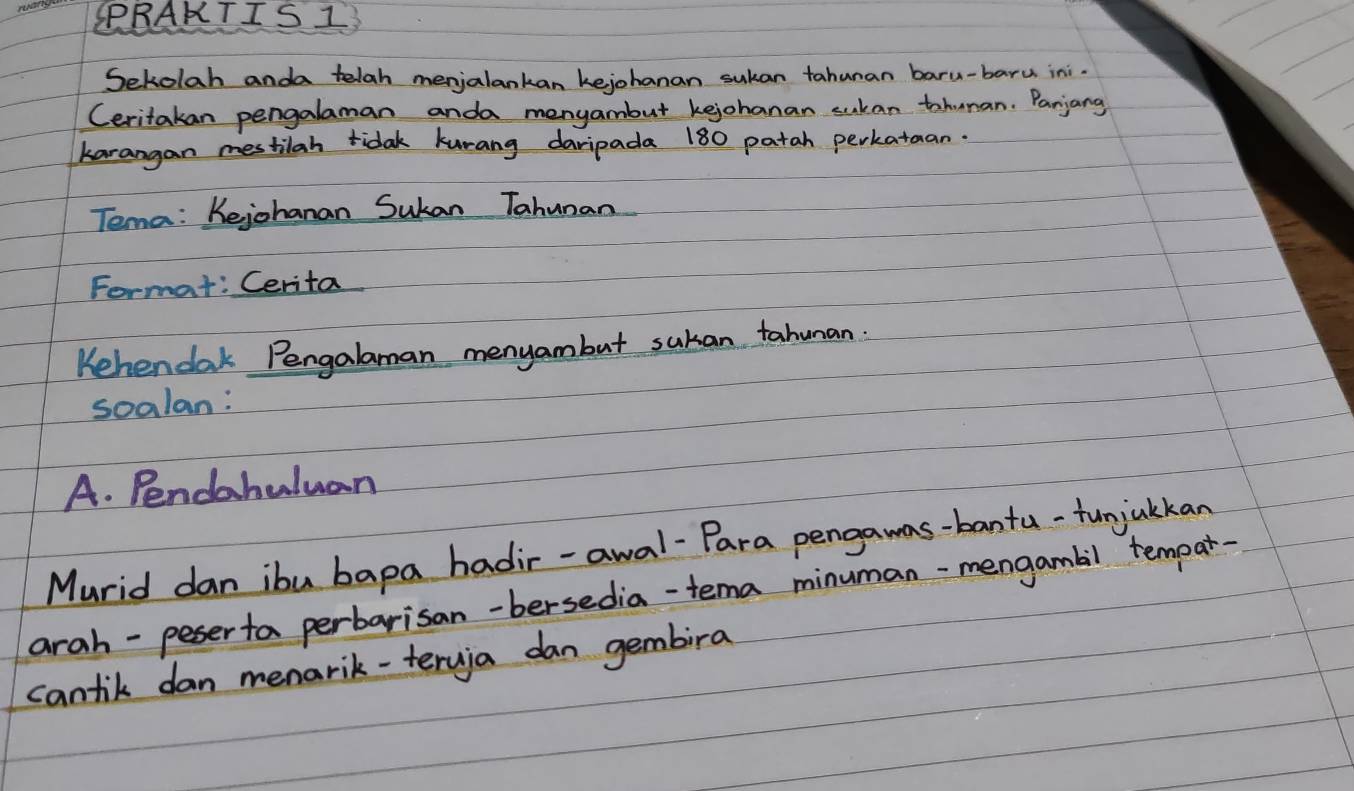 PRAKTIS 1
Sekolah anda telah menjalankan kejohanan sukan tahunan baru-baru ini.
Ceritakan pengalaman anda menyambut kejohanan sukan tahunan. Panjang
karangan mestilah tidak kurang daripada 180 patah perkataan.
Tema: Kejohanan Sukan Tahunan
Format: Cerita
Kehendak Pengalaman menyambut sukan tahunan.
soalan:
A. Pendahuluan
Murid dan ibu bapa hadir - awal - Para pengawas - bantu - tunjukkan
arah - peserta perbarisan - bersedia - tema minuman - mengambil tempat -
cantik dan menarik - teruja dan gembira